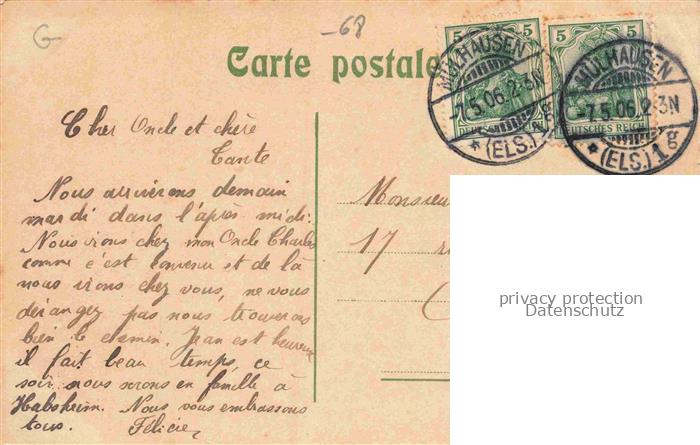 G
-68
Carte postale
5 5
5 5
DEUTSCHES REICH
MÜLHAUSEN
-7.5.06.2-3N
* (ELS.)
MÜLHAUSEN
-7.5.06.2-3N
* (ELS.) 1 g
Cher Oncle et chère
Tante
Nous arriverons demain
mardi dans l'après midi.
Nous irons chez mon Oncle Charles
comme c'est convenu et de là
nous irons chez vous, ne vous
dérangez pas nous trouverons
bien le chemin. Jean est heureux
il fait beau temps, ce
soir nous serons en famille à
Habsheim. Nous vous embrassons
tous. Félicie,
Monsieur
17
privacy protection
Datenschutz